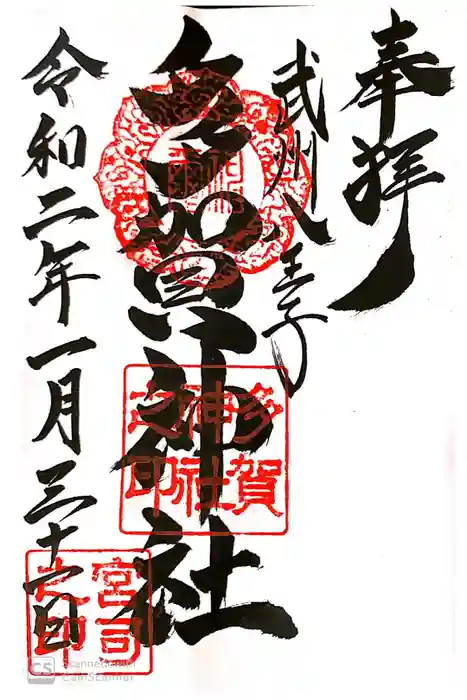 奉拝
武州八王子
多賀神社
多賀
神社
之印
令和二年一月三十一日
宮司
之印
CS
Scanned with
CamScanner